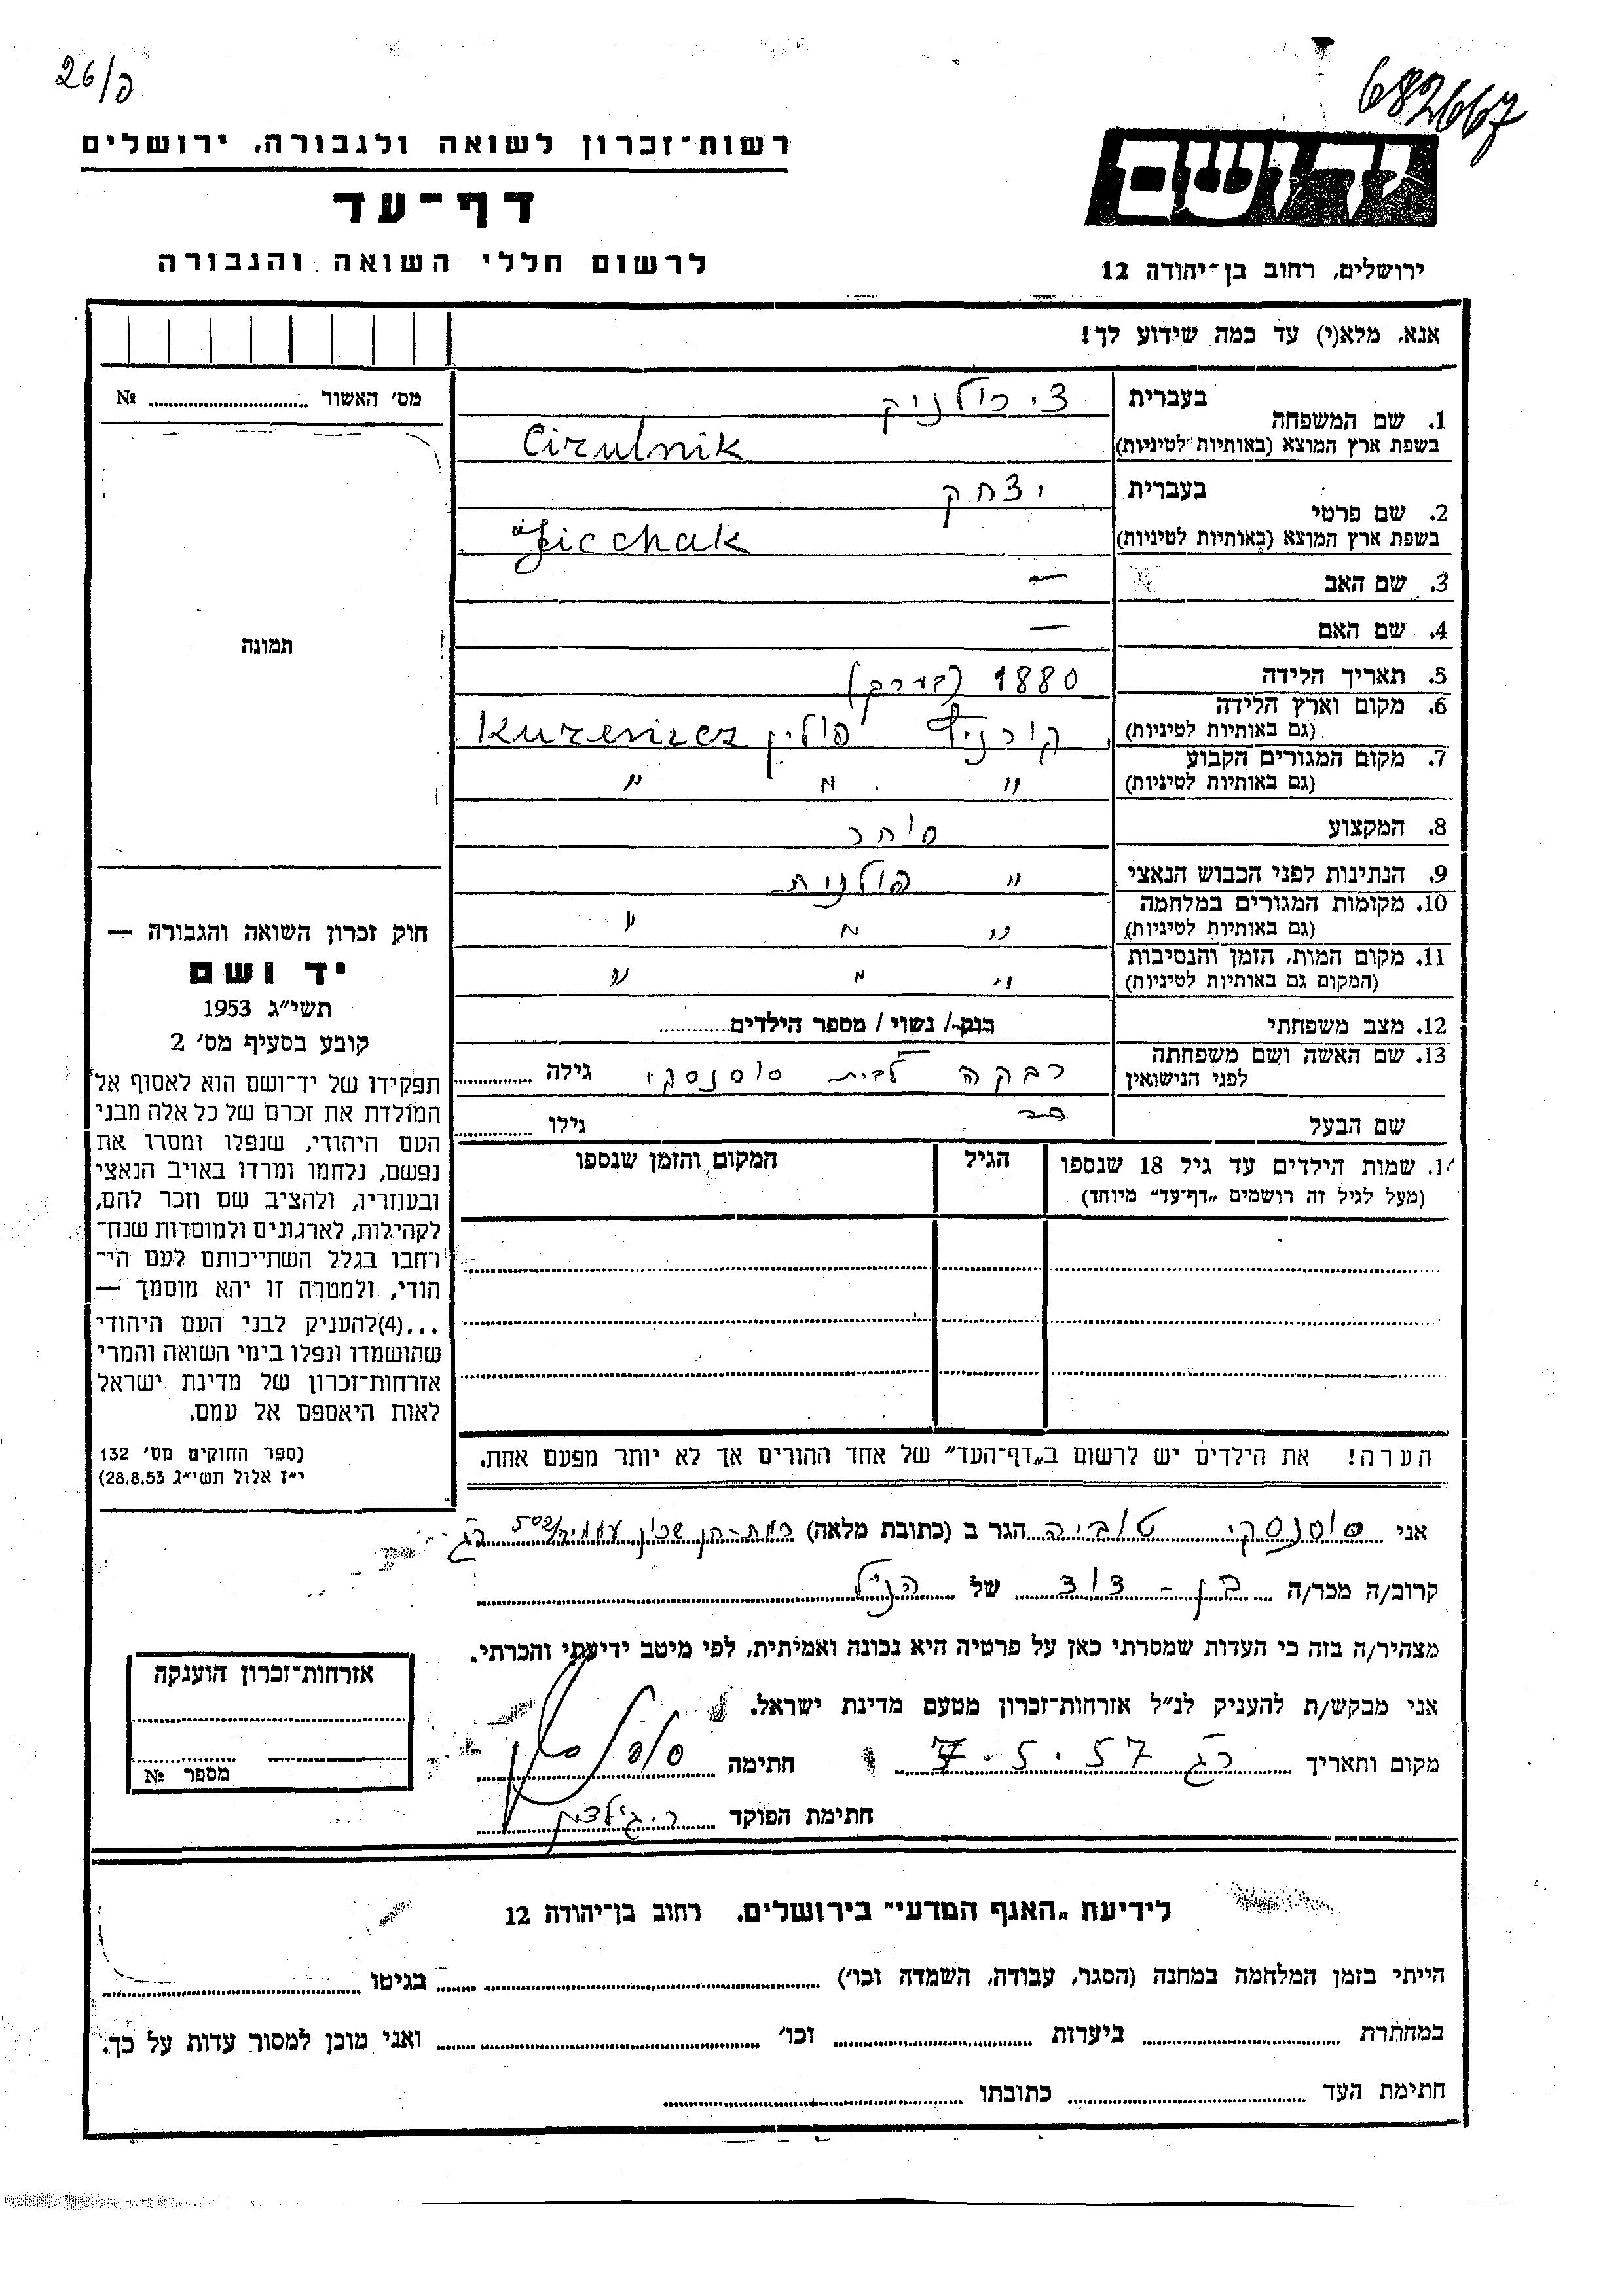 26/פ
682667
רשות־זכרון לשואה ולגבורה, ירושלים
דף־עד
לרשום חללי השואה והגבורה
יד ושם
ירושלים, רחוב בן־יהודה 12
אנא, מלא(י) עד כמה שידוע לך!
מס׳ האשור № 
1. שם המשפחה בעברית צירולניק
בשפת ארץ המוצא (באותיות לטיניות) Cirulnik
2. שם פרטי בעברית יצחק
בשפת ארץ המוצא (באותיות לטיניות) Jicchak
3. שם האב —
4. שם האם —
תמונה
5. תאריך הלידה 1880 (בערך)
6. מקום וארץ הלידה (גם באותיות לטיניות) פולין Kurenicz
7. מקום המגורים הקבוע (גם באותיות לטיניות) " " "
8. המקצוע סוחר
9. הנתינות לפני הכבוש הנאצי " פולנית
10. מקומות המגורים במלחמה (גם באותיות לטיניות) " " "
11. מקום המות, הזמן והנסיבות (המקום גם באותיות לטיניות) " " "
12. מצב משפחתי רווק / נשוי / מספר הילדים
13. שם האשה ושם משפחתה לפני הנישואין רבקה לבית סוסנסקי גילה
שם הבעל גילו
14. שמות הילדים עד גיל 18 שנספו הגיל המקום והזמן שנספו
(מעל לגיל זה רושמים „דף־עד״ מיוחד)
חוק זכרון השואה והגבורה —
יד ושם
תשי״ג 1953
קובע בסעיף מס׳ 2
תפקידו של יד־ושם הוא לאסוף אל
המולדת את זכרם של כל אלה מבני
העם היהודי, שנפלו ומסרו את
נפשם, נלחמו ומרדו באויב הנאצי
ובעוזריו, ולהציב שם וזכר להם,
לקהילות, לארגונים ולמוסדות שנח־
רחבו בגלל השתייכותם לעם הי־
הודי, ולמטרה זו יהא מוסמך —
...(4)להעניק לבני העם היהודי
שהושמדו ונפלו בימי השואה והמרי
אזרחות־זכרון של מדינת ישראל
לאות היאספם אל עמם.
(ספר החוקים מס׳ 132
י״ז אלול תשי״ג 28.8.53)
הערה! את הילדים יש לרשום ב„דף־העד״ של אחד ההורים אך לא יותר מפעם אחת.
אני סוסנסקי טוביה הגר ב (כתובת מלאה) רמת-גן שכון 502 רג
קרוב/ה מכר/ה בן-דוד של הנ״ל
מצהיר/ה בזה כי העדות שמסרתי כאן על פרטיה היא נכונה ואמיתית, לפי מיטב ידיעתי והכרתי.
אני מבקש/ת להעניק לנ״ל אזרחות־זכרון מטעם מדינת ישראל.
מקום ותאריך רג 7.5.57 חתימה
חתימת הפוקד
אזרחות־זכרון הוענקה
מספר №
לידיעת „האגף המדעי״ בירושלים, רחוב בן־יהודה 12
הייתי בזמן המלחמה במחנה (הסגר, עבודה, השמדה וכו׳) בגיטו
במחתרת ביערות וכו׳ ואני מוכן למסור עדות על כך.
חתימת העד כתובתו